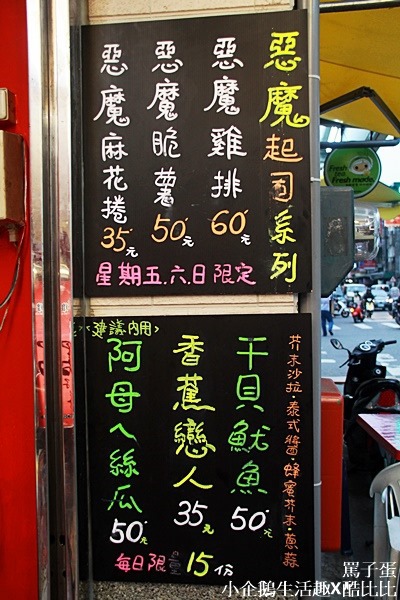 惡魔起司系列
惡魔雞排
60元
惡魔脆薯
50元
惡魔麻花捲
35元
星期五.六.日限定
Fresh tea
Fresh made.
<建議內用>
芥末沙拉·泰式醬·蜂蜜芥末·蔥蒜
干貝魷魚
50元
香蕉戀人
35元
阿母ㄟ絲瓜
50元
每日限量15份
罵子蛋
小企鵝生活趣X酷比比